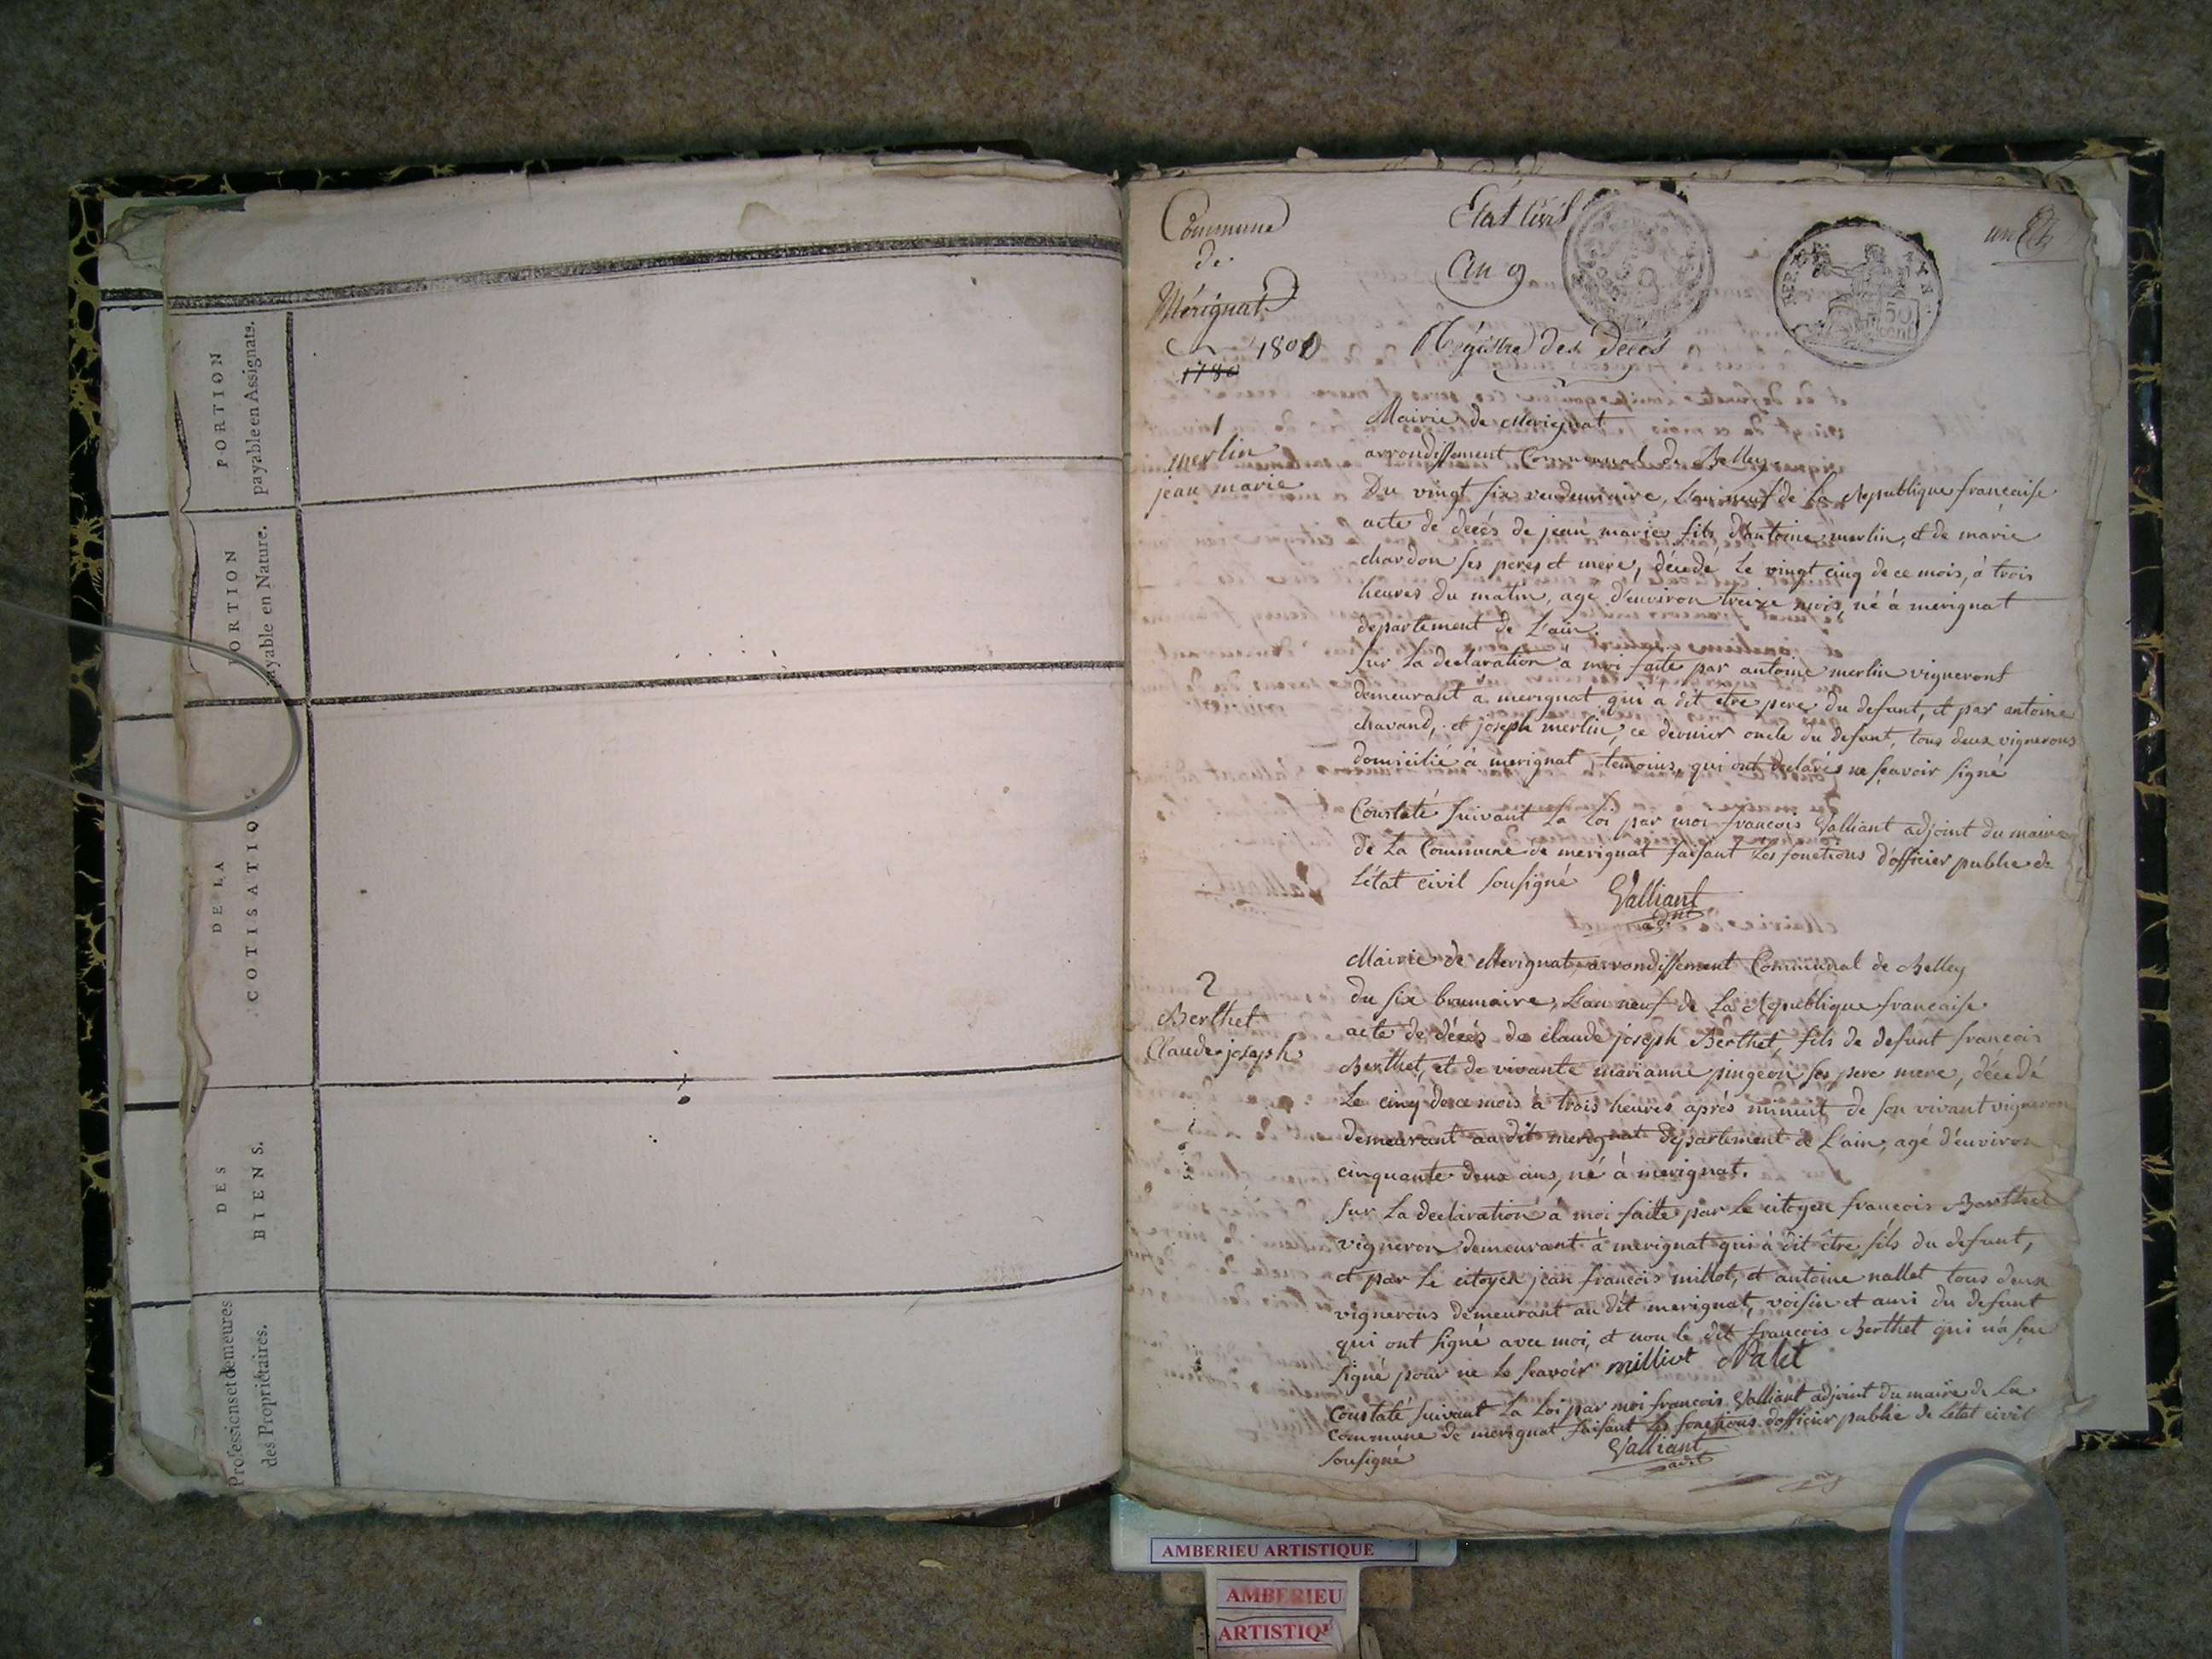 PORTION
payable en Assignats.
PORTION
payable en Nature.
DE LA
COTISATIO
DES
BIENS.
Professions et demeures
des Propriétaires.
Commune
de
Mérignat
1801
1780
Etat Civil
An 9
Régistre des Décés
un
REP. FRAN.
50
cent
1
merlin
jean marie
Mairie de Merignat
arrondissement Communal de Belley
Du vingt six vendemiaire, L'an neuf de La Republique francaise
acte de decés de jean marie fils d'antoine merlin, et de marie
chardon ses peres et mere, décedé Le vingt cinq de ce mois, à trois
heures du matin, age d'environ treize mois, né à merignat
departement de L'ain.
sur La declaration à moi faite par antoine merlin vigneront
demeurant à merignat qui à dit etre pere du defunt, et par antoine
chavand, et joseph merlin, ce dernier oncle du defunt, tous deux vignerons
domicilié à merignat, temoins, qui ont declarés ne seavoir signé
Constaté suivant La Loi par moi francois Valliant adjoint du maire
de La Commune de merignat faisant Les fonctions d'officier public de
L'état civil sousigné
Valliant
adjnt
2
Berthet
Claude joseph
Mairie de Merignat arrondissement Communal de Belley
du six brumaire, L'an neuf de La Republique francaise
acte de décés de claude joseph Berthet, fils de defunt francois
Berthet, et de vivante marianne pingeon ses pere mere, décedé
Le cinq de ce mois à trois heures aprés minuit de son vivant vigneron
demeurant au dit merignat departement de L'ain, agé d'environ
cinquante deux ans, né à merignat.
sur La declaration à moi faitte par Le citoyen francois Berthet
vigneron demeurant à merignat qui à dit être fils du defunt,
et par Le citoyen jean francois millot, et antoine nallet tous deux
vignerons demeurant au dit merignat, voisin et ami du defunt
qui ont signé avec moi, et non le dit francois Berthet qui n'a seu
signé pour ne le seavoir milliot Nalet
Constaté suivant La Loi par moi francois Valliant adjoint du maire de La
Commune de merignat faisant les fonctions d'officier public de L'etat civil
sousigné
Valliant
adjt
AMBERIEU ARTISTIQUE
AMBERIEU
ARTISTIQU